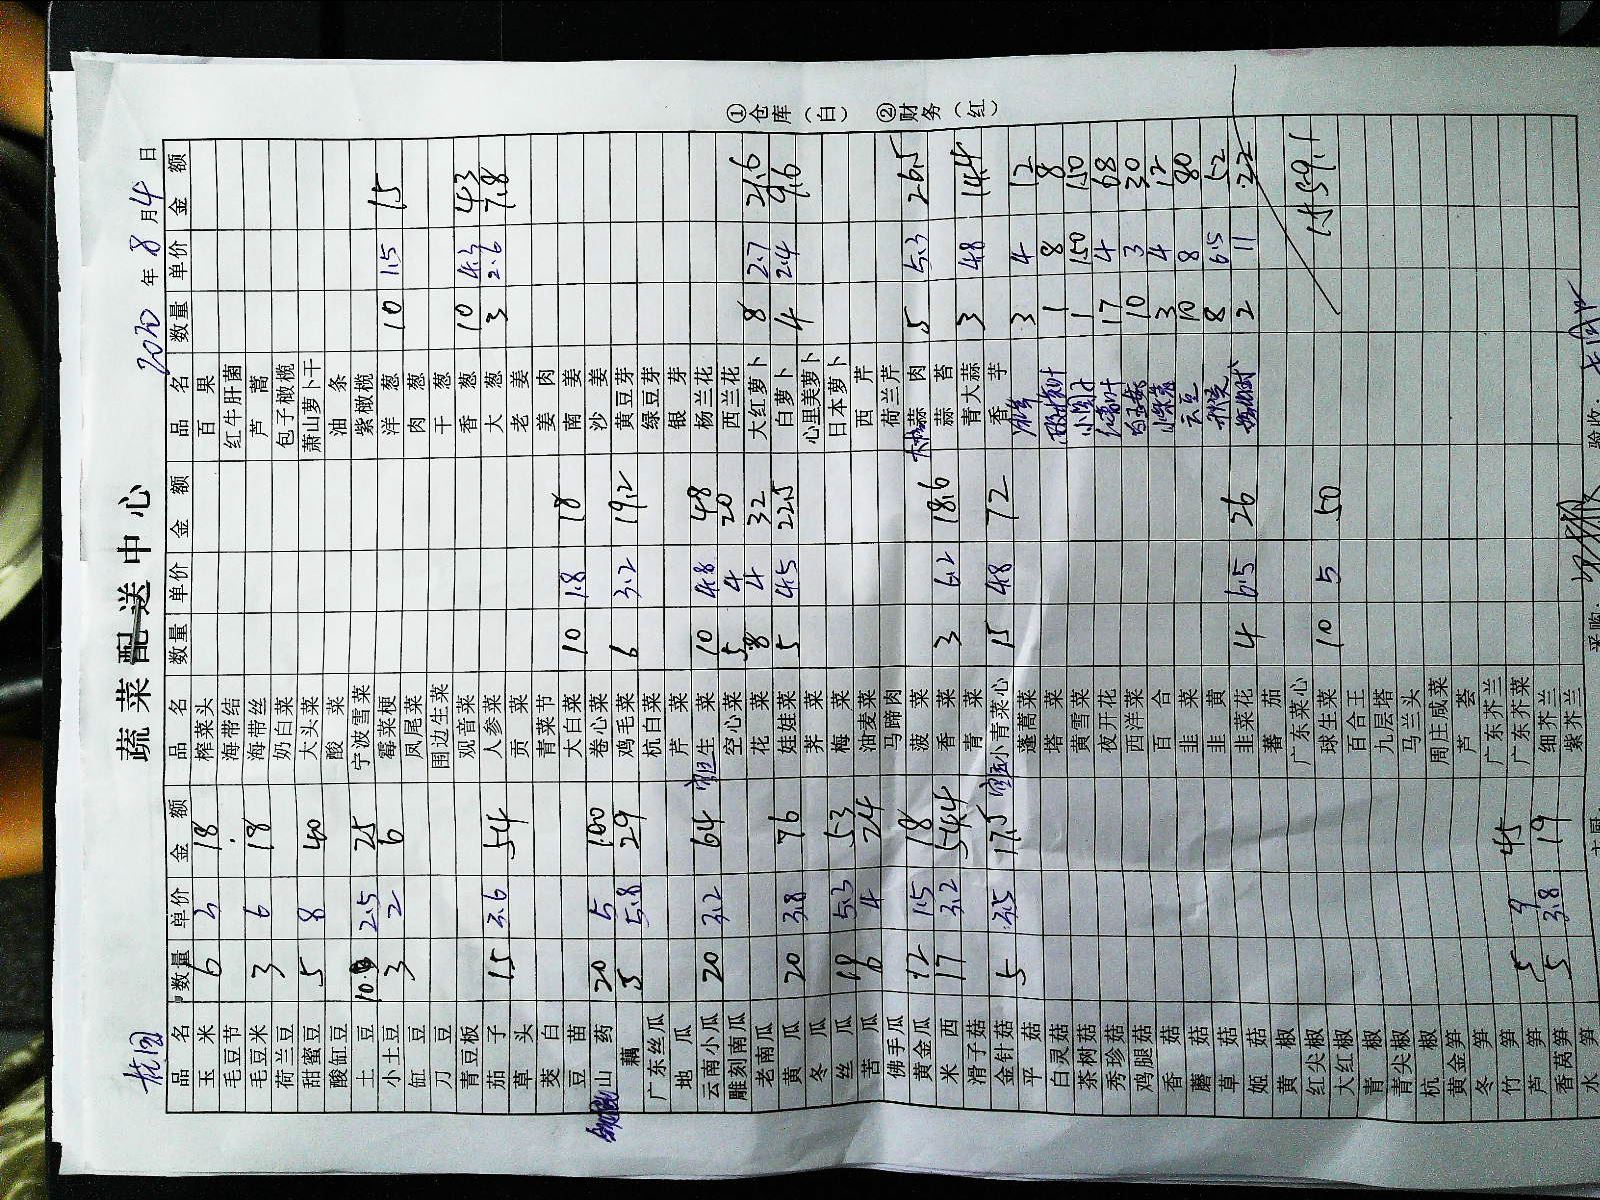 蔬菜配送中心
杭园 2020年8月4日
品名 数量 单价 金额 品名 数量 单价 金额 品名 数量 单价 金额
玉米 6 3 18 榨菜头 百果
毛豆节 海带结 红牛肝菌
毛豆米 3 6 18 海带丝 芦蒿
荷兰豆 奶白菜 包子橄榄
甜蜜豆 5 8 40 大头菜 萧山萝卜干
酸缸豆 酸菜 油条
土豆 10 2.5 25 宁波雪菜 紫橄榄
小土豆 3 2 6 霉菜梗 洋葱 10 1.5 15
缸豆 凤尾菜 肉葱
刀豆 围边生菜 干葱
青豆板 观音菜 香葱 10 4.3 43
茄子 15 3.6 54 人参菜 大葱 3 2.6 7.8
草头 贡菜 老姜
茭白 青菜节 姜肉
豆苗 大白菜 10 1.8 18 南姜
山药 20 5 100 卷心菜 沙姜
藕 5 5.8 29 鸡毛菜 6 3.2 19.2 黄豆芽
广东丝瓜 杭白菜 绿豆芽
地瓜 芹菜 银芽
云南小瓜 20 3.2 64 生菜 10 4.8 48 杨兰花
雕刻南瓜 空心菜 5 4 20 西兰花
老南瓜 花菜 8 4 32 大红萝卜 8 2.7 21.6
黄瓜 20 3.8 76 娃娃菜 5 4.5 22.5 白萝卜 4 2.4 9.6
冬瓜 荠菜 心里美萝卜
丝瓜 10 5.3 53 梅菜 日本萝卜
苦瓜 6 4 24 油麦菜 西芹
佛手瓜 马蹄肉 荷兰芹
黄金瓜 12 1.5 18 菠菜 蒜肉 5 5.3 26.5
米西 17 3.2 54.4 香菜 3 6.2 18.6 蒜苔
滑子菇 青菜 青大蒜 3 4.8 14.4
金针菇 5 3.5 17.5 小青菜心 15 4.8 72 香芋
平菇 蓬蒿菜 3 4 12
白灵菇 塔菜 1 8 8
茶树菇 黄雪菜 1 150 150
秀珍菇 夜开花 17 4 68
鸡腿菇 西洋菜 10 3 30
香菇 百合 3 4 12
蘑菇 韭菜 云豆 10 8 80
草菇 韭黄 秋葵 8 6.5 52
姬菇 韭菜花 4 6.5 26 2 11 22
黄椒 蕃茄
红尖椒 广东菜心
大红椒 球生菜 10 5 50 1559.1
青椒 百合王
青尖椒 九层塔
杭椒 马兰头
黄金笋 周庄咸菜
冬笋 芦荟
竹笋 5 9 45 广东芥兰
芦笋 5 3.8 19 广东芥菜
香莴笋 细芥兰
水笋 紫芥兰
①仓库（白） ②财务（红）